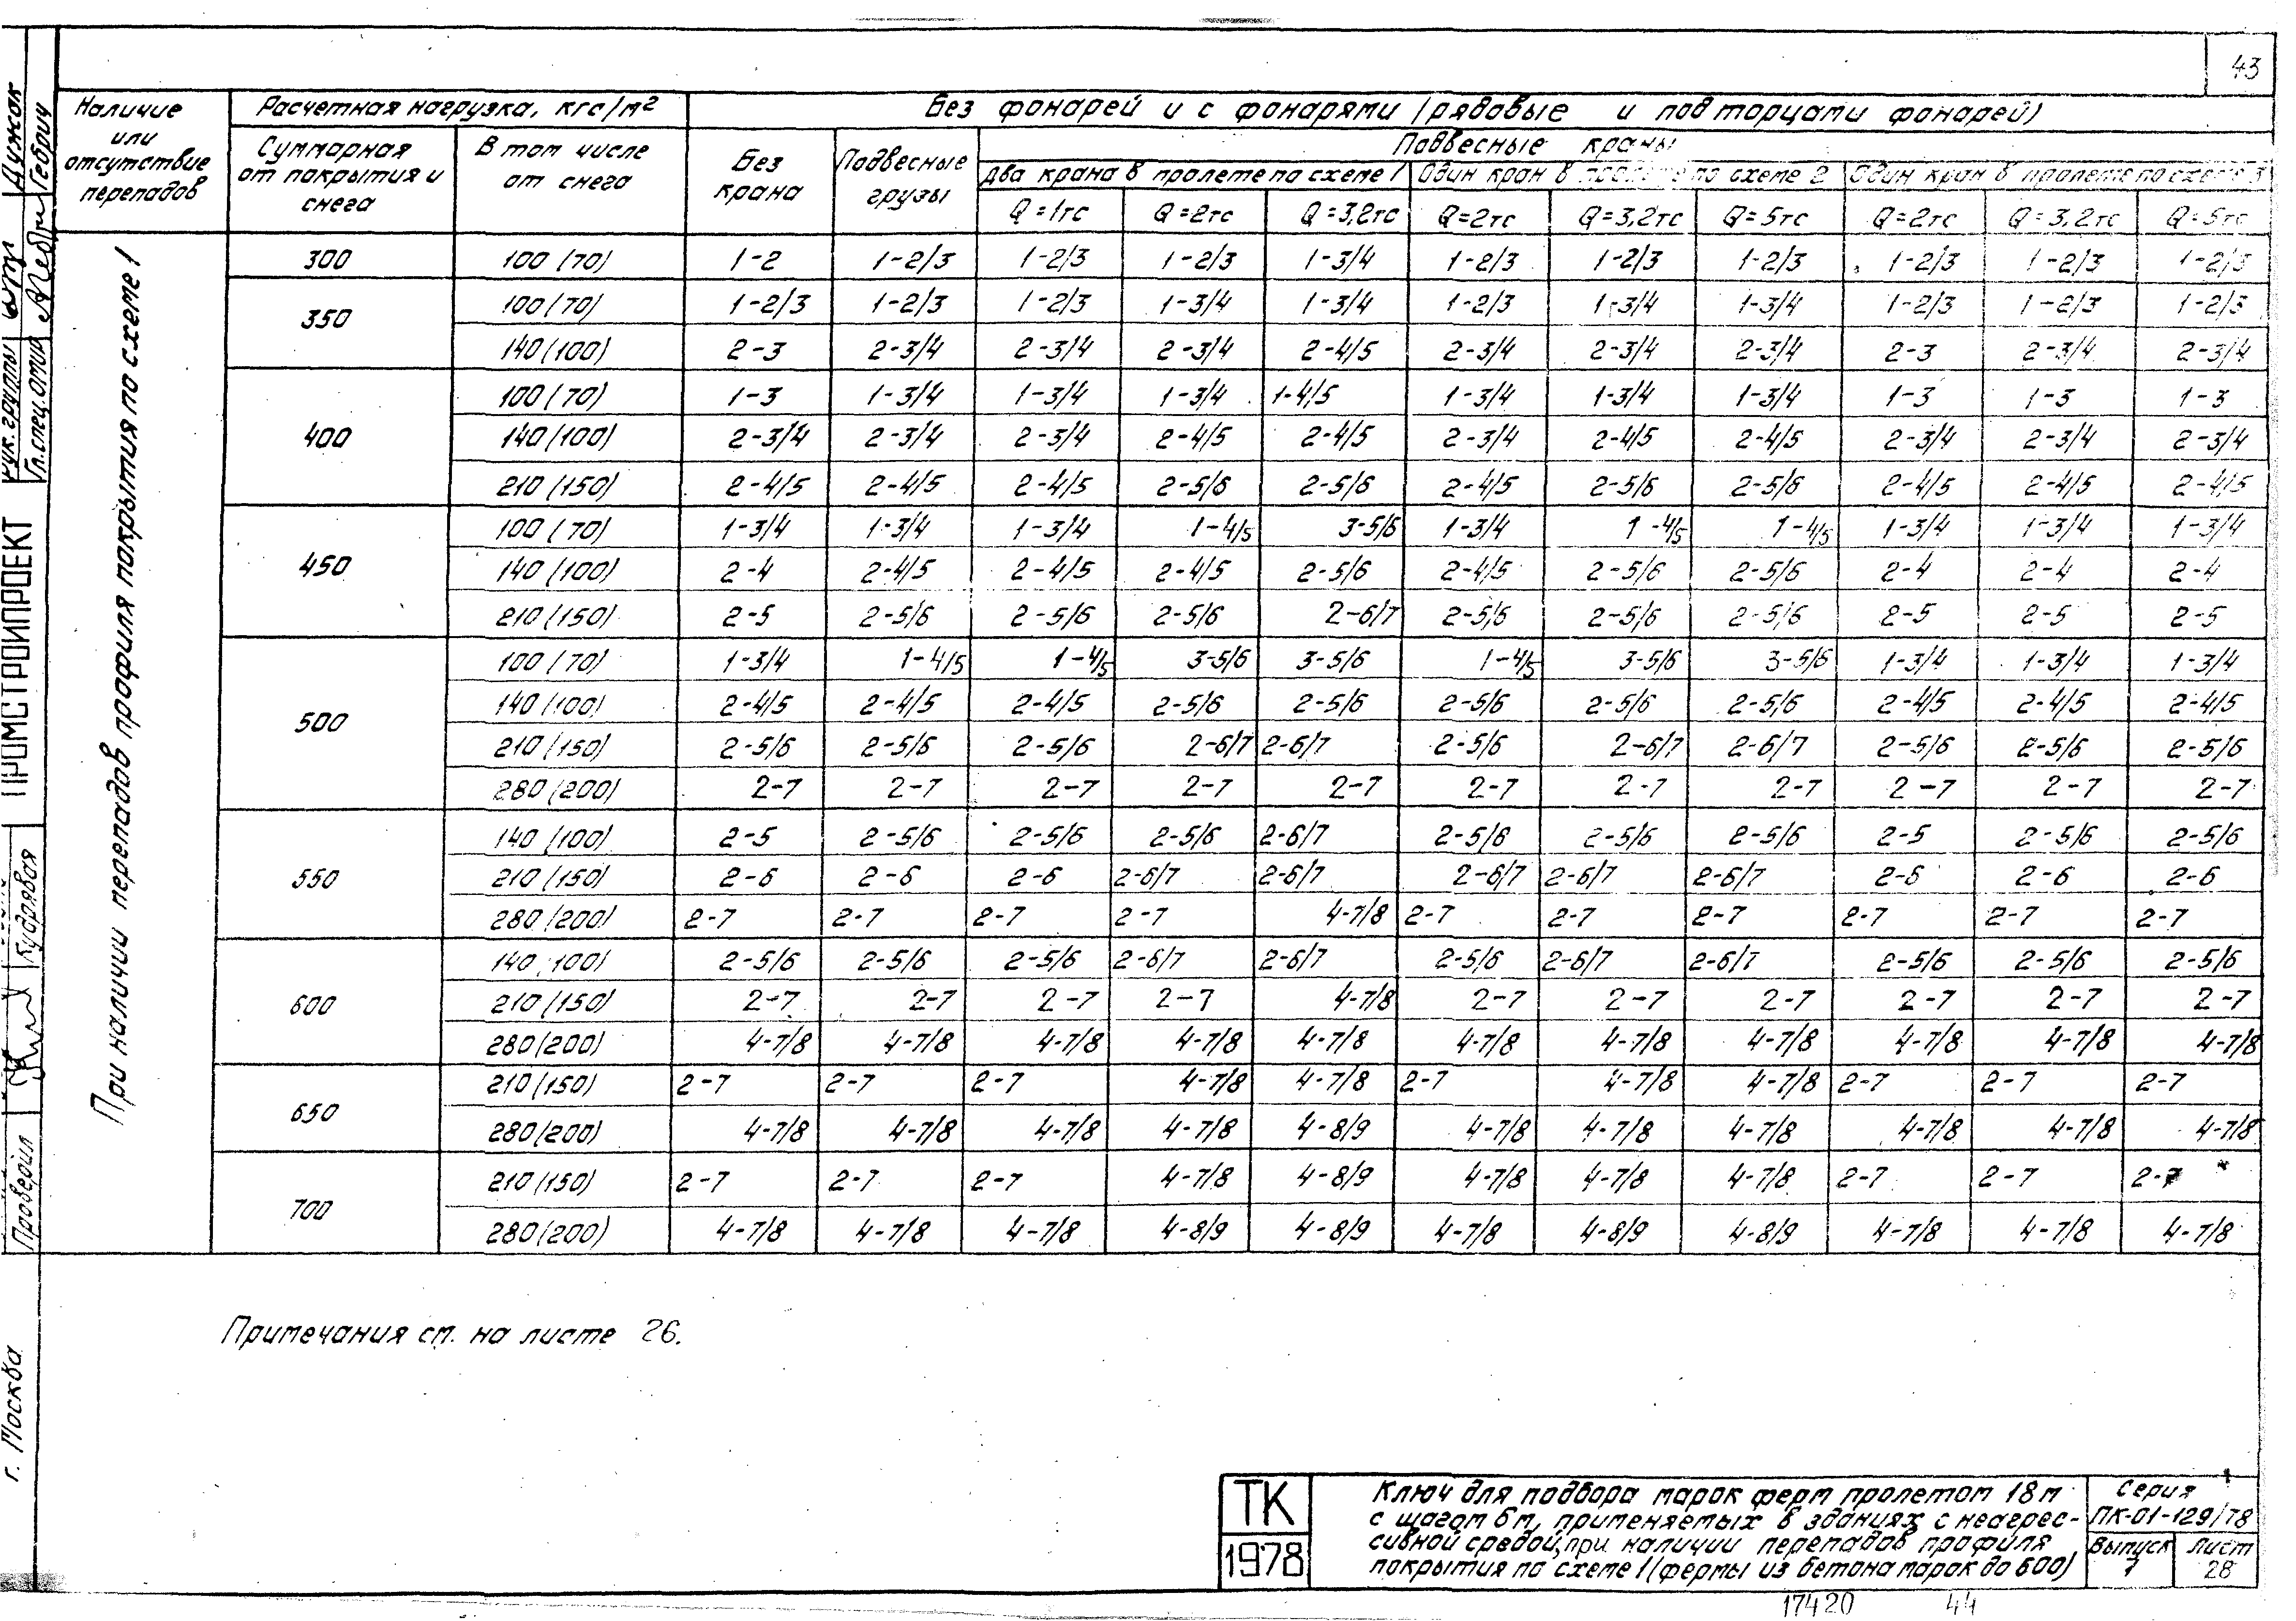 43
Наличие или отсутствие перепадов
Расчетная нагрузка, кгс/м²
Без фонарей и с фонарями (рядовые и под торцами фонарей)
Суммарная от покрытия и снега
В том числе от снега
Без крана
Подвесные грузы
Подвесные краны
Два крана в пролете по схеме 1
Один кран в пролете по схеме 2
Один кран в пролете по схеме 3
Q=1тс Q=2тс Q=3,2тс Q=2тс Q=3,2тс Q=5тс Q=2тс Q=3,2тс Q=5тс
При наличии перепадов профиля покрытия по схеме 1
300 100(70) 1-2 1-2/3 1-2/3 1-2/3 1-3/4 1-2/3 1-2/3 1-2/3 1-2/3 1-2/3 1-2/3
350 100(70) 1-2/3 1-2/3 1-2/3 1-3/4 1-3/4 1-2/3 1-3/4 1-3/4 1-2/3 1-2/3 1-2/3
140(100) 2-3 2-3/4 2-3/4 2-3/4 2-4/5 2-3/4 2-3/4 2-3/4 2-3 2-3/4 2-3/4
400 100(70) 1-3 1-3/4 1-3/4 1-3/4 1-4/5 1-3/4 1-3/4 1-3/4 1-3 1-3 1-3
140(100) 2-3/4 2-3/4 2-3/4 2-4/5 2-4/5 2-3/4 2-4/5 2-4/5 2-3/4 2-3/4 2-3/4
210(150) 2-4/5 2-4/5 2-4/5 2-5/6 2-5/6 2-4/5 2-5/6 2-5/6 2-4/5 2-4/5 2-4/5
450 100(70) 1-3/4 1-3/4 1-3/4 1-4/5 3-5/6 1-3/4 1-4/5 1-4/5 1-3/4 1-3/4 1-3/4
140(100) 2-4 2-4/5 2-4/5 2-4/5 2-5/6 2-4/5 2-5/6 2-5/6 2-4 2-4 2-4
210(150) 2-5 2-5/6 2-5/6 2-5/6 2-6/7 2-5/6 2-5/6 2-5/6 2-5 2-5 2-5
500 100(70) 1-3/4 1-4/5 1-4/5 3-5/6 3-5/6 1-4/5 3-5/6 3-5/6 1-3/4 1-3/4 1-3/4
140(100) 2-4/5 2-4/5 2-4/5 2-5/6 2-5/6 2-5/6 2-5/6 2-5/6 2-4/5 2-4/5 2-4/5
210(150) 2-5/6 2-5/6 2-5/6 2-6/7 2-6/7 2-5/6 2-6/7 2-6/7 2-5/6 2-5/6 2-5/6
280(200) 2-7 2-7 2-7 2-7 2-7 2-7 2-7 2-7 2-7 2-7 2-7
550 140(100) 2-5 2-5/6 2-5/6 2-5/6 2-6/7 2-5/6 2-5/6 2-5/6 2-5 2-5/6 2-5/6
210(150) 2-6 2-6 2-6 2-6/7 2-6/7 2-6/7 2-6/7 2-6/7 2-6 2-6 2-6
280(200) 2-7 2-7 2-7 2-7 4-7/8 2-7 2-7 2-7 2-7 2-7 2-7
600 140(100) 2-5/6 2-5/6 2-5/6 2-6/7 2-6/7 2-5/6 2-6/7 2-6/7 2-5/6 2-5/6 2-5/6
210(150) 2-7 2-7 2-7 2-7 4-7/8 2-7 2-7 2-7 2-7 2-7 2-7
280(200) 4-7/8 4-7/8 4-7/8 4-7/8 4-7/8 4-7/8 4-7/8 4-7/8 4-7/8 4-7/8 4-7/8
650 210(150) 2-7 2-7 2-7 4-7/8 4-7/8 2-7 4-7/8 4-7/8 2-7 2-7 2-7
280(200) 4-7/8 4-7/8 4-7/8 4-7/8 4-8/9 4-7/8 4-7/8 4-7/8 4-7/8 4-7/8 4-7/8
700 210(150) 2-7 2-7 2-7 4-7/8 4-8/9 4-7/8 4-7/8 4-7/8 2-7 2-7 2-7
280(200) 4-7/8 4-7/8 4-7/8 4-8/9 4-8/9 4-7/8 4-8/9 4-8/9 4-7/8 4-7/8 4-7/8
Примечания см. на листе 26.
Рук. группы Гл.спец.отир
Дужак
Гебрич
ПРОМСТРОЙПРОЕКТ
Кудрявая
Проверил
г. Москва
ТК
1978
Ключ для подбора марок ферм пролетом 18м
с шагом 6м, применяемых в зданиях с неагрес-
сивной средой, при наличии перепадов профиля
покрытия по схеме 1 (фермы из бетона марок до 600)
Серия
ПК-01-129/78
Выпуск
7
Лист
28
17420 44